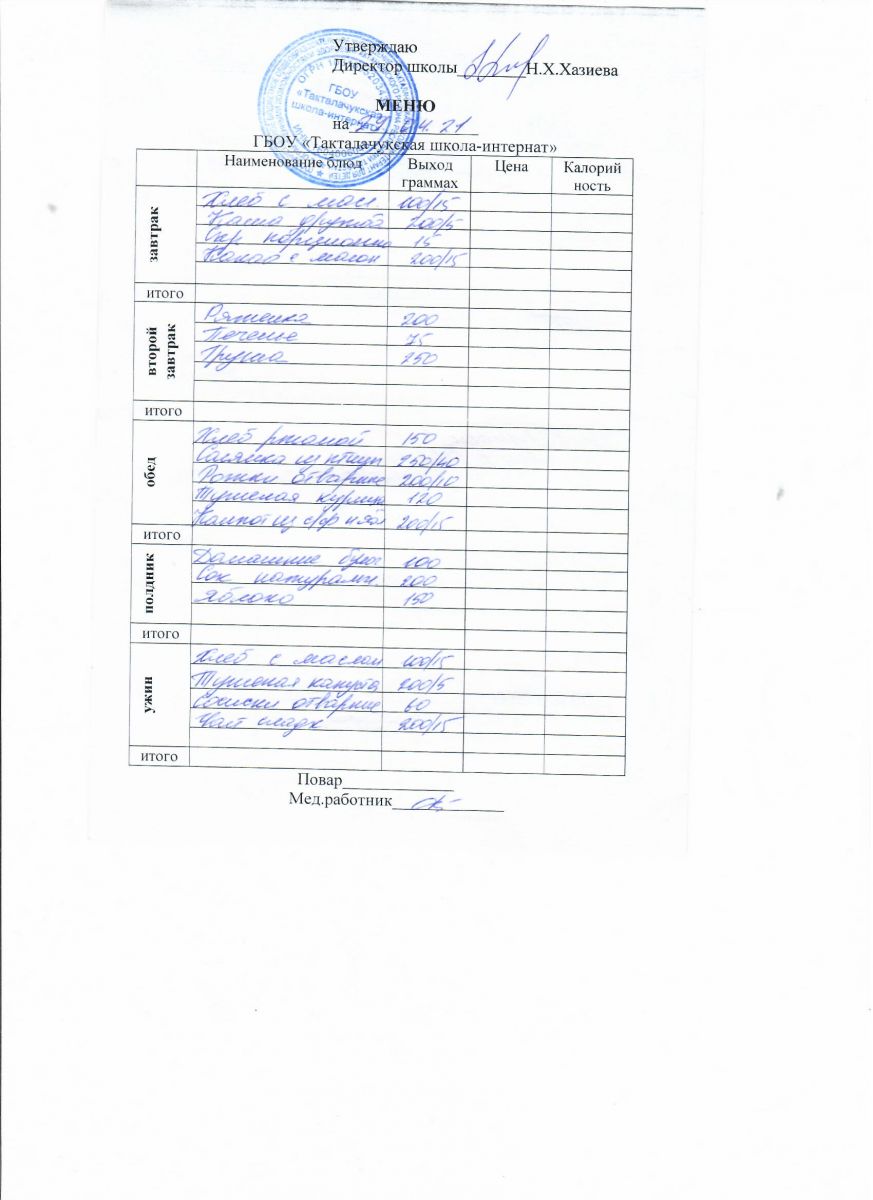 Утверждаю
Директор школы________Н.Х.Хазиева
ГБОУ
«Такталачукская
школа-интернат»
МЕНЮ
на 29.04.21
ГБОУ «Такталачукская школа-интернат»
Наименование блюд Выход граммах Цена Калорий ность
завтрак
Хлеб с масл 100/15
Каша дружба 200/5
Сыр порционно 15
Какао с молок 200/15
итого
второй завтрак
Ряженка 200
Печенье 75
Груша 250
итого
обед
Хлеб ржаной 150
Солянка из птицы 250/40
Рожки отварные 200/10
Тушеная курица 120
Компот из с/ф и ябл 200/15
итого
полдник
Домашние булоч 100
Сок натуральн. 200
Яблоко 150
итого
ужин
Хлеб с маслом 100/15
Тушеная капуста 200/5
Сосиски отварные 60
Чай сладк 200/15
итого
Повар_____________
Мед.работник_____________